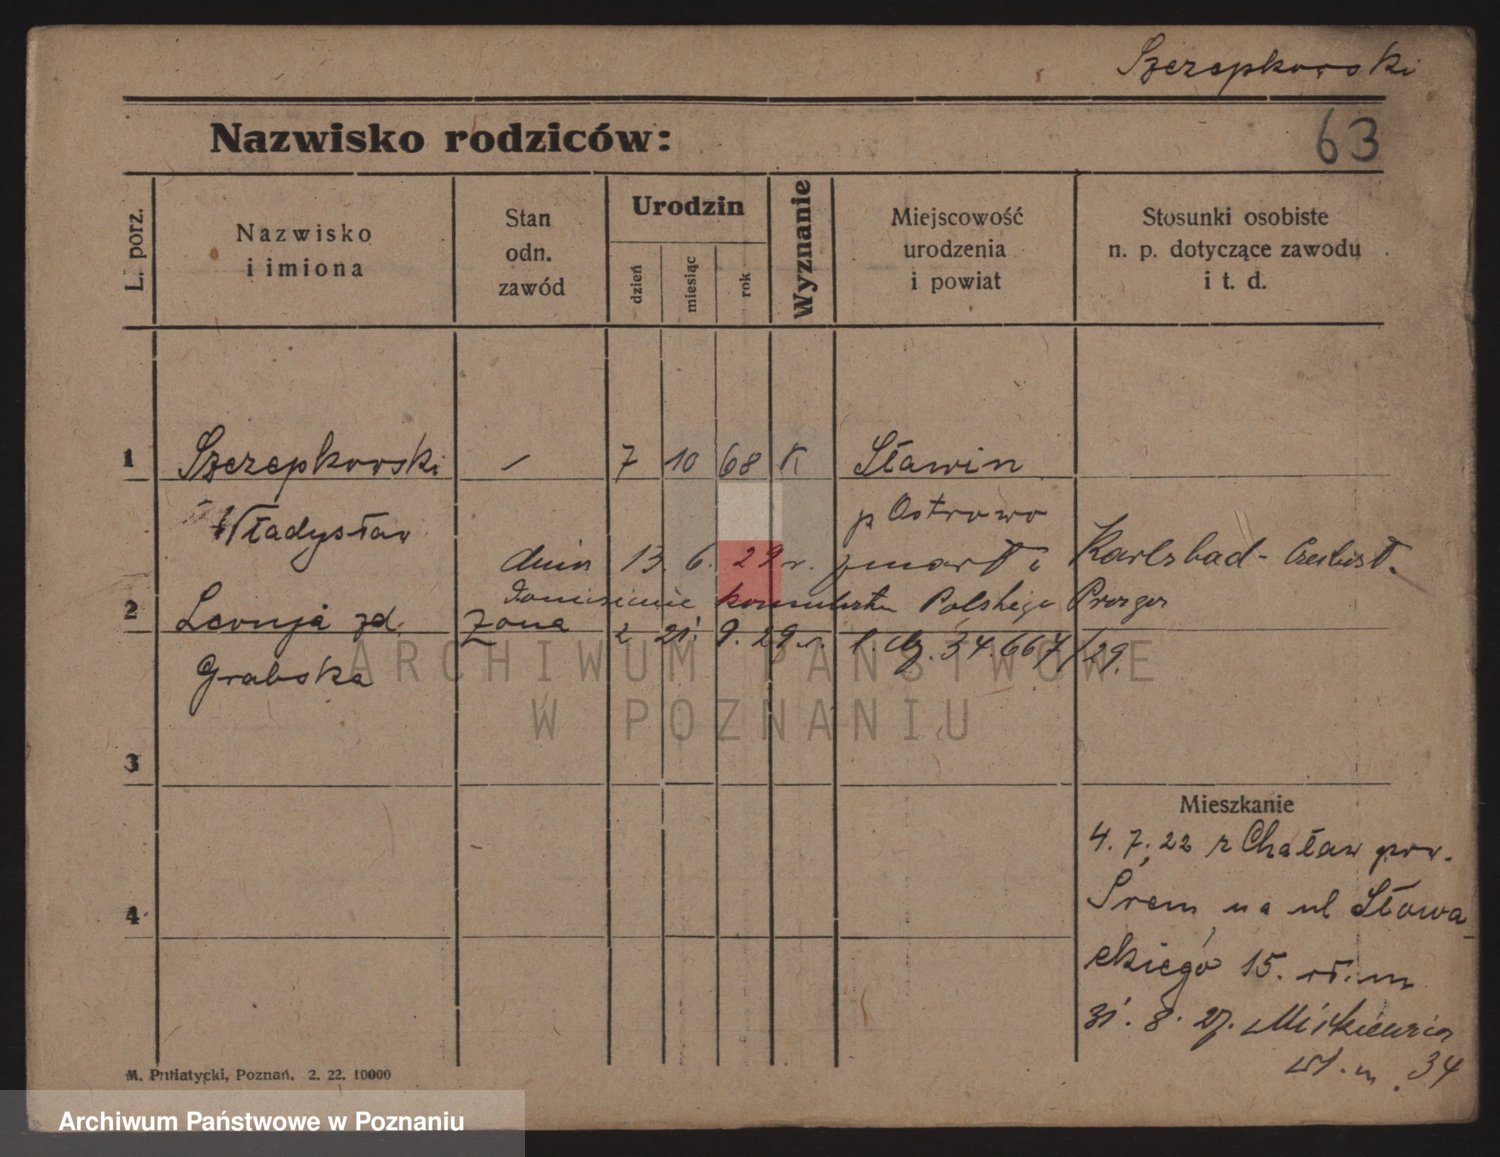 Szczepkowski
63
Nazwisko rodziców:
L. porz.
Nazwisko
i imiona
Stan
odn.
zawód
Urodzin
dzień
miesiąc
rok
Wyznanie
Miejscowość
urodzenia
i powiat
Stosunki osobiste
n. p. dotyczące zawodu
i t. d.
1 Szczepkowski — 7 10 68 K Sławin
Władysław p Ostrowo
dnia 13 6. 29 r. zmarł w Karlsbad-
Doniesienie konsulatu Polskiego
2 Leonja zd. żona z 21. 9. 29 r. l. dz. 34.667/29.
Grabska
3
4
Mieszkanie
4. 7. 22 z Chaław pow.
Śrem na ul Słowa-
ckiego 15. wł. m
31. 8. 27. Mickiewicza
wł. m. 34
M. Putiatycki, Poznań. 2. 22. 10000
ARCHIWUM PAŃSTWOWE
W POZNANIU
Archiwum Państwowe w Poznaniu